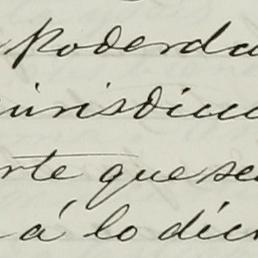 Poderda
jurisdicc
rte que se
á lo dicr